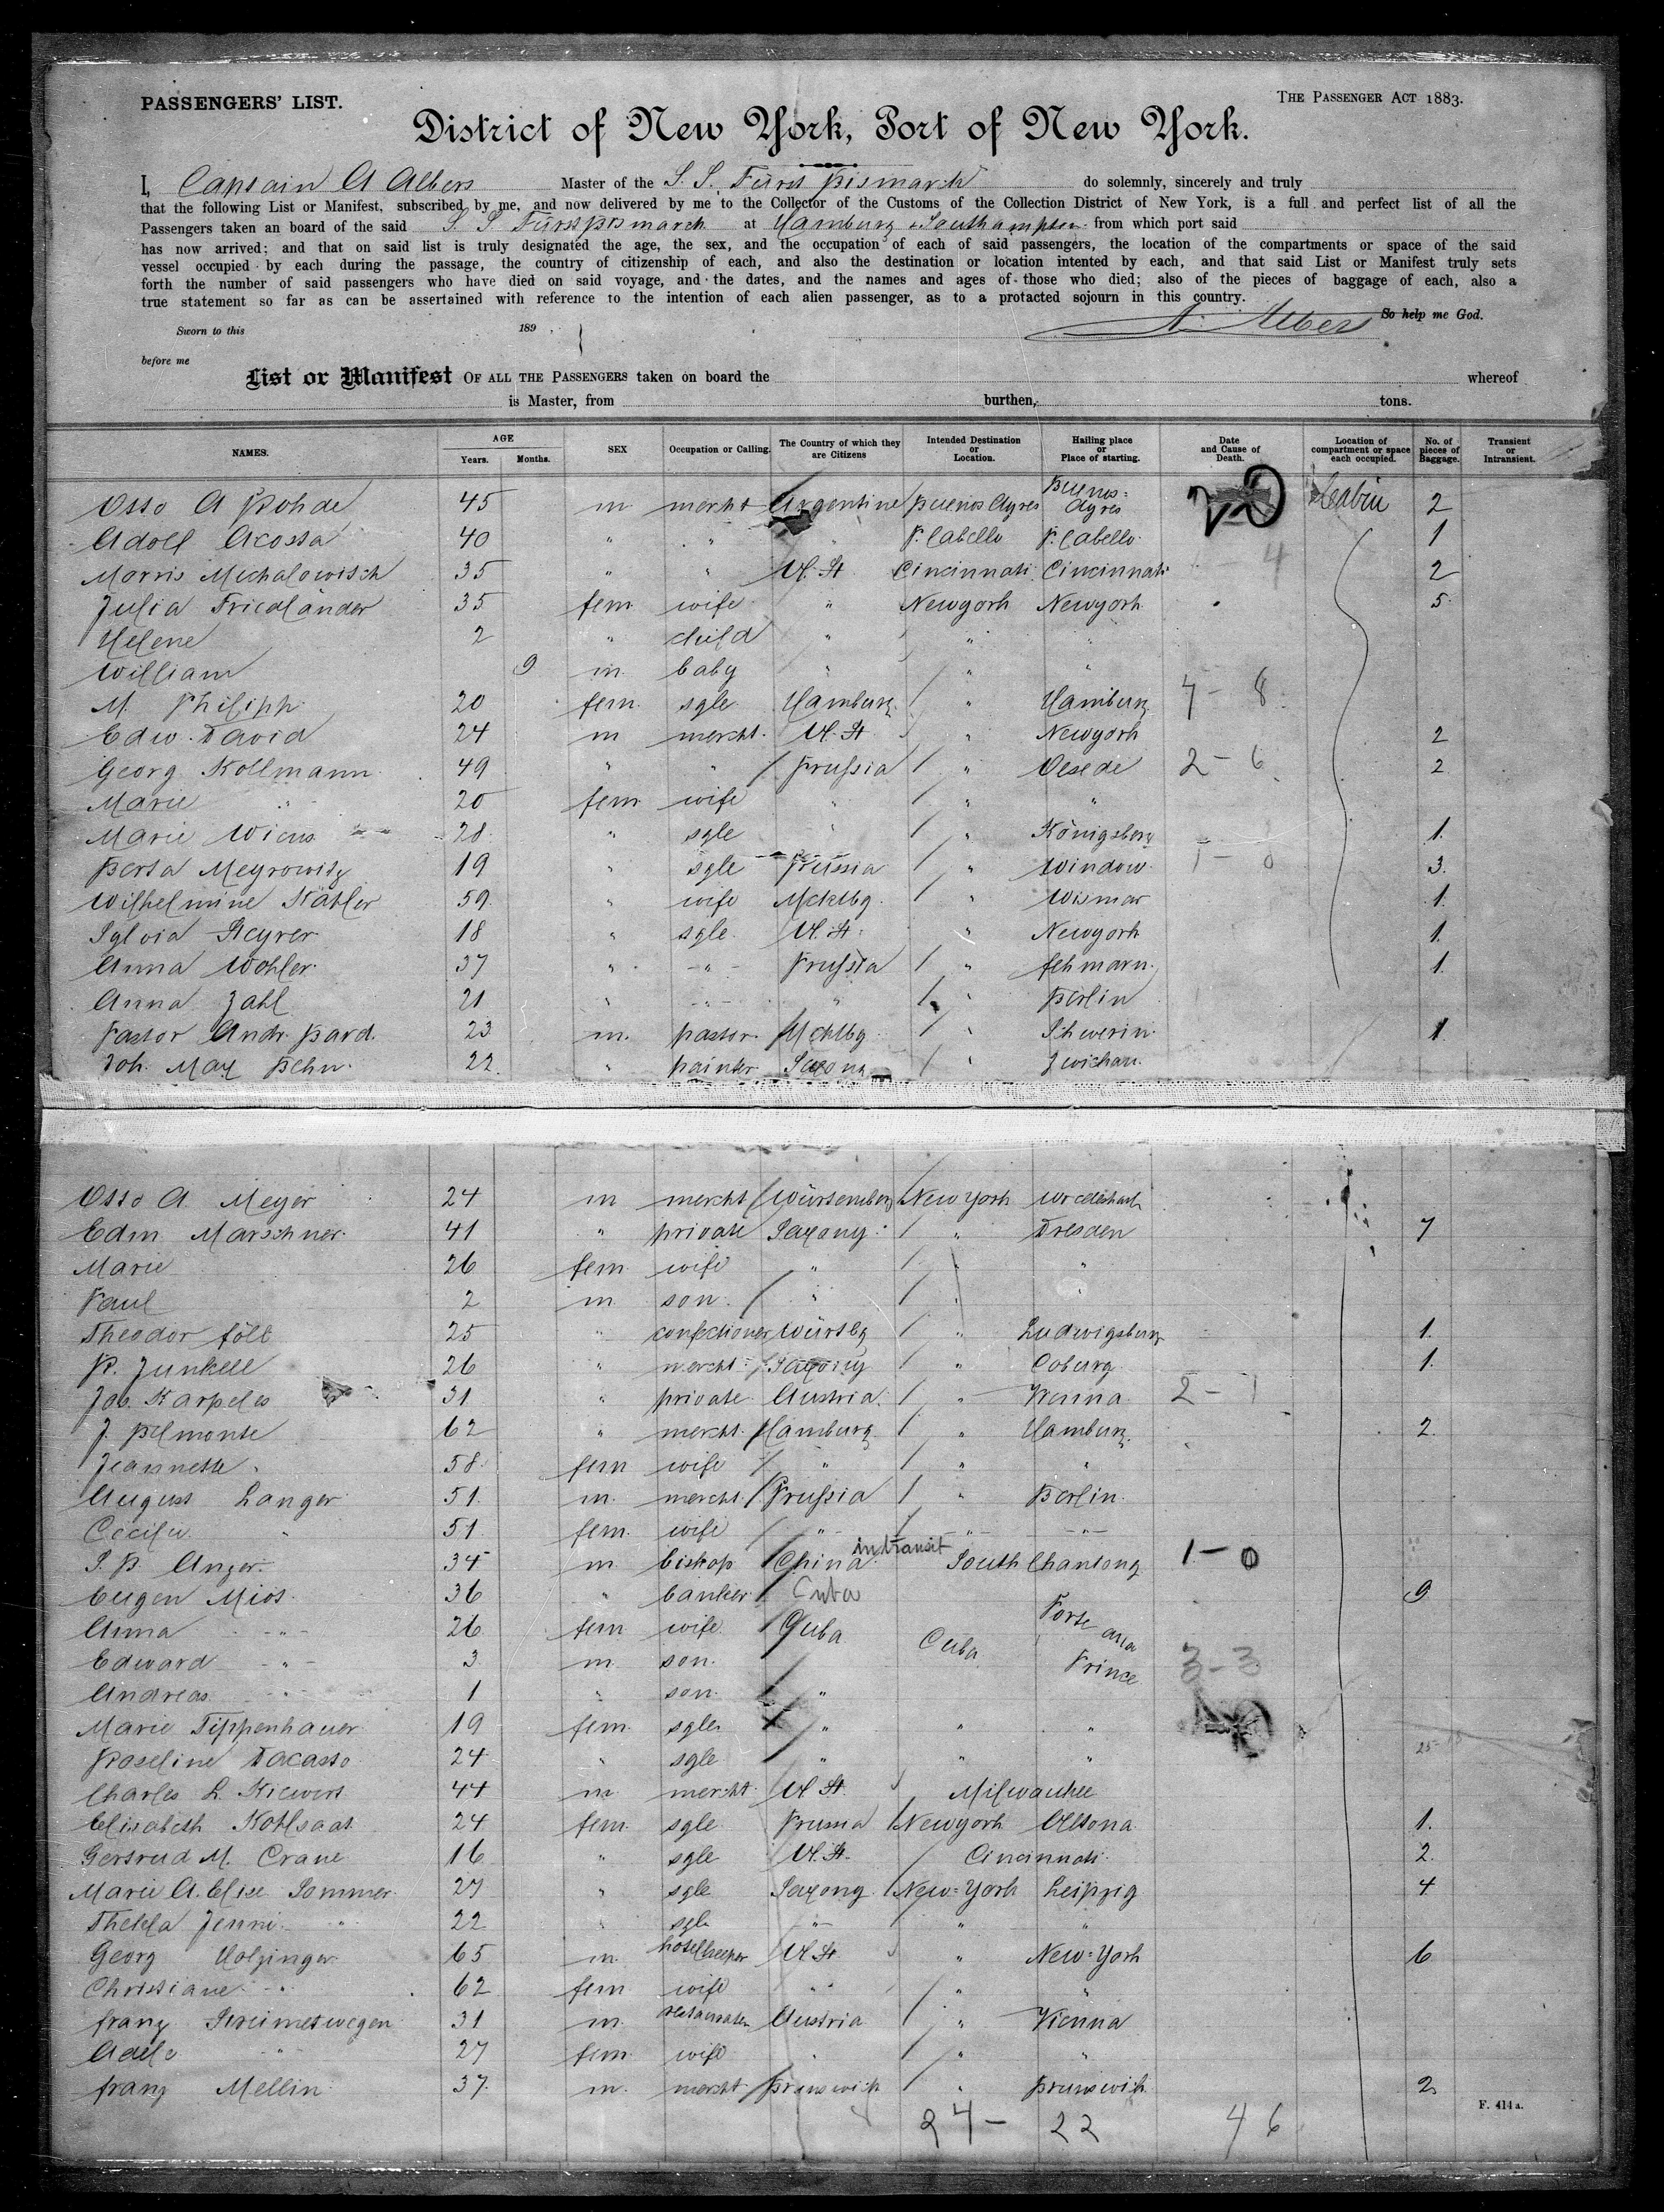 PASSENGERS' LIST.
THE PASSENGER ACT 1883.
District of New York, Port of New York.
I, Captain A Albers Master of the S. S. Fürst Bismarck do solemnly, sincerely and truly
that the following List or Manifest, subscribed by me, and now delivered by me to the Collector of the Customs of the Collection District of New York, is a full and perfect list of all the
Passengers taken an board of the said S S Fürst Bismarck at Hamburg & Southampton from which port said
has now arrived; and that on said list is truly designated the age, the sex, and the occupation of each of said passengers, the location of the compartments or space of the said
vessel occupied by each during the passage, the country of citizenship of each, and also the destination or location intented by each, and that said List or Manifest truly sets
forth the number of said passengers who have died on said voyage, and the dates, and the names and ages of those who died; also of the pieces of baggage of each, also a
true statement so far as can be assertained with reference to the intention of each alien passenger, as to a protacted sojourn in this country.
So help me God.
Sworn to this 189 A. Albers
before me
List or Manifest OF ALL THE PASSENGERS taken on board the whereof
is Master, from burthen, tons.
NAMES. AGE Years. Months. SEX Occupation or Calling. The Country of which they are Citizens Intended Destination or Location. Hailing place or Place of starting. Date and Cause of Death. Location of compartment or space each occupied. No. of pieces of Baggage. Transient or Intransient.
Otto A Rohde 45 m mercht Argentine Buenos Ayres Buenos-Ayres 2
Adolf Acosta 40 " " " P. Cabello P. Cabello 1
Morris Michalowitsch 35 " " U. St Cincinnati Cincinnati 4 2
Julia Friedländer 35 fem wife " Newyork Newyork 5
Helene 2 " child " " "
William 9 m. baby " " "
M. Philipp 20 fem. sgle Hamburg " Hamburg 7 - 8
Edw. David 24 m mercht. U. St " Newyork 2
Georg Kollmann 49 " " Prussia " Oesede 2 - 6 2
Marie " 20 fem wife " " "
Marie Wiens 28 " sgle " " Königsberg 1.
Berta Meyrowitz 19 " sgle Prussia " Window 3.
Wilhelmine Kähler 59 " wife Mcklbg. " Wismar 1.
Sylvia Steyrer 18 " sgle U. St. " Newyork 1.
Anna Wohler 37 " - " - Prussia " Fehmarn. 1.
Anna Zahl 21 " - " - " " Berlin
Pastor Andr. Bard. 23 m. pastor. Mcklbg " Schwerin 1
Joh. Max Behn. 22. " painter Saxony " Zwickau
Otto A. Meyer 24 m mercht Würtemberg New York
Edm Marschner 41 " private Saxony " Dresden 7
Marie 26 fem. wife " " "
Paul 2 m. son " " "
Theodor Föll 25 " confectioner Würtbg " Ludwigsburg 1.
R. Junkell 26 " mercht Saxony Coburg 1.
Jac. Karpeles 31 " private Austria " Vienna 2 - 1
J. Belmonte 62 " mercht. Hamburg " Hamburg. 2.
Jeannette 58 fem wife " " "
August Langer 51. m. mercht. Prussia " Berlin.
Cecilie " 51 fem. wife - " - - " - - " -
in transit
J. B. Anzer 34 m. bishop China South Chantong 1 - 0
Eugen Mios 36 " banker Cuba 9
Anna - " - 26 fem wife Cuba Cuba Porte au Prince
Edward - " - 3 m. son. 3 - 3
Andreas - " - 1 " son "
Marie Tippenhauer 19 fem. sgle " " "
Roseline Dacasso 24 " sgle " " "
Charles L. Kiewert 44 m mercht U. St. Milwaukee
Elisabeth Kohlsaat 24 fem. sgle Prussia Newyork Altona 1.
Gertrud M. Crane 16 " sgle U. St. Cincinnati 2.
Marie A. Elise Sommer 27 " sgle Saxony New-York Leipzig 4
Thekla Jenni " 22 " sgle - " - " "
Georg Holzinger 65 m. hotelkeeper U. St " New-York 6
Christiane - " - 62 fem wife " " "
Franz Streimetwegen 31 m. Austria " Vienna
Adele " 27 fem. wife " " "
Franz Mellin 37. m. mercht Brunswick " Brunswick 2
24 - 22 46
F. 414 a.